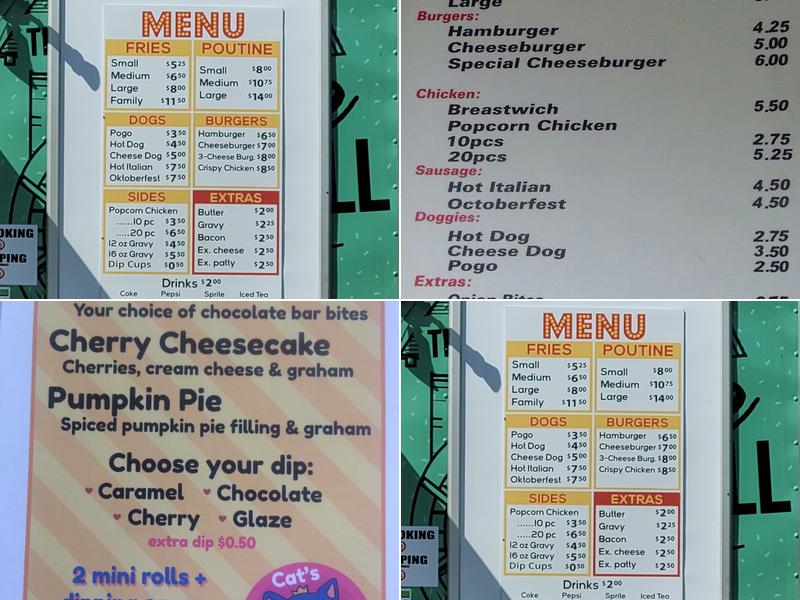 MENU
FRIES
Small $5.25
Medium $6.50
Large $8.00
Family $11.50
POUTINE
Small $8.00
Medium $10.75
Large $14.00
DOGS
Pogo $3.50
Hot Dog $4.50
Cheese Dog $5.00
Hot Italian $7.50
Oktoberfest $7.50
BURGERS
Hamburger $6.50
Cheeseburger $7.00
3-Cheese Burg. $8.00
Crispy Chicken $8.50
SIDES
Popcorn Chicken
......10 pc $3.50
.....20 pc $6.50
12 oz Gravy $4.50
16 oz Gravy $5.50
Dip Cups $0.50
EXTRAS
Butter $2.00
Gravy $2.25
Bacon $2.50
Ex. cheese $2.50
Ex. patty $2.50
Drinks $2.00
Coke Pepsi Sprite Iced Tea
OKING
PING
LL
Large
Burgers:
Hamburger 4.25
Cheeseburger 5.00
Special Cheeseburger 6.00
Chicken:
Breastwich 5.50
Popcorn Chicken
10pcs 2.75
20pcs 5.25
Sausage:
Hot Italian 4.50
Octoberfest 4.50
Doggies:
Hot Dog 2.75
Cheese Dog 3.50
Pogo 2.50
Extras:
Your choice of chocolate bar bites
Cherry Cheesecake
Cherries, cream cheese & graham
Pumpkin Pie
Spiced pumpkin pie filling & graham
Choose your dip:
♥ Caramel ♥ Chocolate
♥ Cherry ♥ Glaze
extra dip $0.50
2 mini rolls +
Cat's
MENU
FRIES
Small $5.25
Medium $6.50
Large $8.00
Family $11.50
POUTINE
Small $8.00
Medium $10.75
Large $14.00
DOGS
Pogo $3.50
Hot Dog $4.50
Cheese Dog $5.00
Hot Italian $7.50
Oktoberfest $7.50
BURGERS
Hamburger $6.50
Cheeseburger $7.00
3-Cheese Burg. $8.00
Crispy Chicken $8.50
SIDES
Popcorn Chicken
......10 pc $3.50
.....20 pc $6.50
12 oz Gravy $4.50
16 oz Gravy $5.50
Dip Cups $0.50
EXTRAS
Butter $2.00
Gravy $2.25
Bacon $2.50
Ex. cheese $2.50
Ex. patty $2.50
Drinks $2.00
Coke Pepsi Sprite Iced Tea
OKING
PING
LL